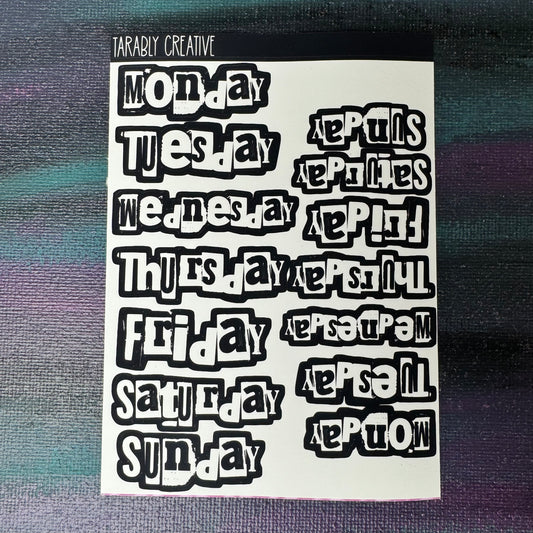 TARABLY CREATIVE
Monday
Tuesday
Wednesday
Thursday
Friday
Saturday
Sunday
Sunday
Saturday
Friday
Thursday
Wednesday
Tuesday
Monday